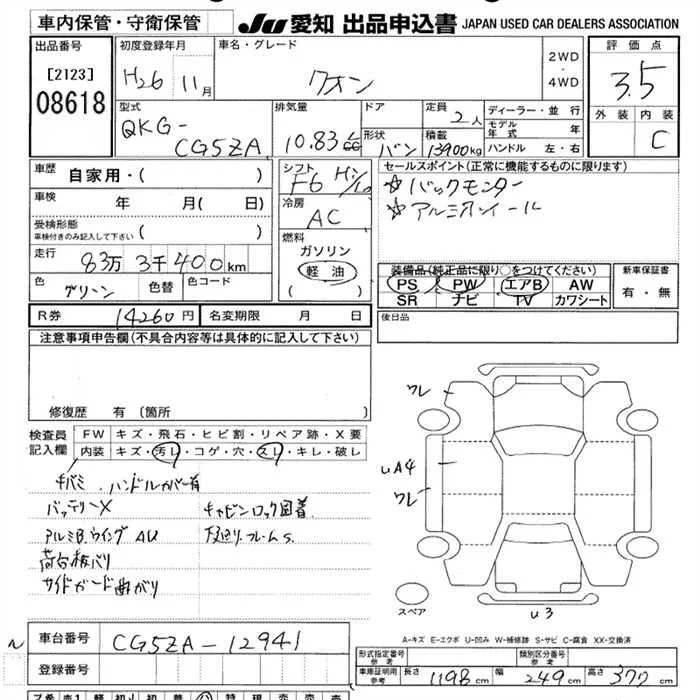 車内保管・守衛保管
JU 愛知 出品申込書 JAPAN USED CAR DEALERS ASSOCIATION
出品番号
[2123]
08618
初度登録年月
H26 11月
車名・グレード
クオン
2WD
・
4WD
評価点
3.5
外装 内装
C
型式
QKG-
CG5ZA
排気量
10.83
ドア
形状
バン
定員
2人
積載
13900kg
ディーラー・並行
モデル年式 年
ハンドル 左・右
車歴
自家用・( )
車検
年 月( 日)
受検形態
車検付きのみ記入して下さい
( )
走行
83万 3千400km
色
グリーン
色替
色コード
シフト
F6 Hi/Lo
冷房
AC
燃料
ガソリン
軽油
( )
セールスポイント(正常に機能するものに限ります)
☆バックモニター
☆アルミホイール
装備品(純正品に限り○をつけてください)
PS PW エアB AW
SR ナビ TV カワシート
新車保証書
有・無
R券
14260円
名変期限 月 日
後日品
注意事項申告欄(不具合内容等は具体的に記入して下さい)
修復歴 有(箇所 )
検査員
記入欄
FW キズ・飛石・ヒビ割・リペア跡・X要
内装 キズ・汚レ・コゲ・穴・スレ・キレ・破レ
キバミ ハンドルカバー有
バッテリーX
キャビンロック固着
アルミB.ウイング AU
下廻り.フレームS
荷台板バリ
サイドガード曲がり
ワレ
UA4
ワレ
スペア
U3
A-キズ E-エクボ U-凹み W-補修跡 S-サビ C-腐食 XX-交換済
車台番号
CG5ZA-12941
登録番号
形式指定番号
参考
類別区分番号
参考
車庫証明用
参考
長さ 1198cm 幅 249cm 高さ 377cm